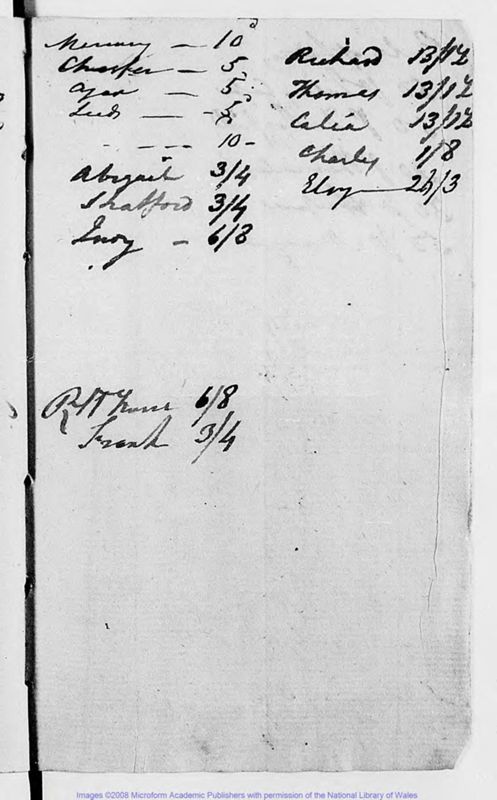 Mercury — 10d
Chester — 5
Ajax — 5
Leeds — 5
- --- 10 -
Abigail 3/4
Stratford 3/4
6/8
Richard 13/12
Thomas 13/12
Celia 13/12
Charley 1/8
26/3
6/8
Frank 3/4
Images ©2008 Microform Academic Publishers with permission of the National Library of Wales